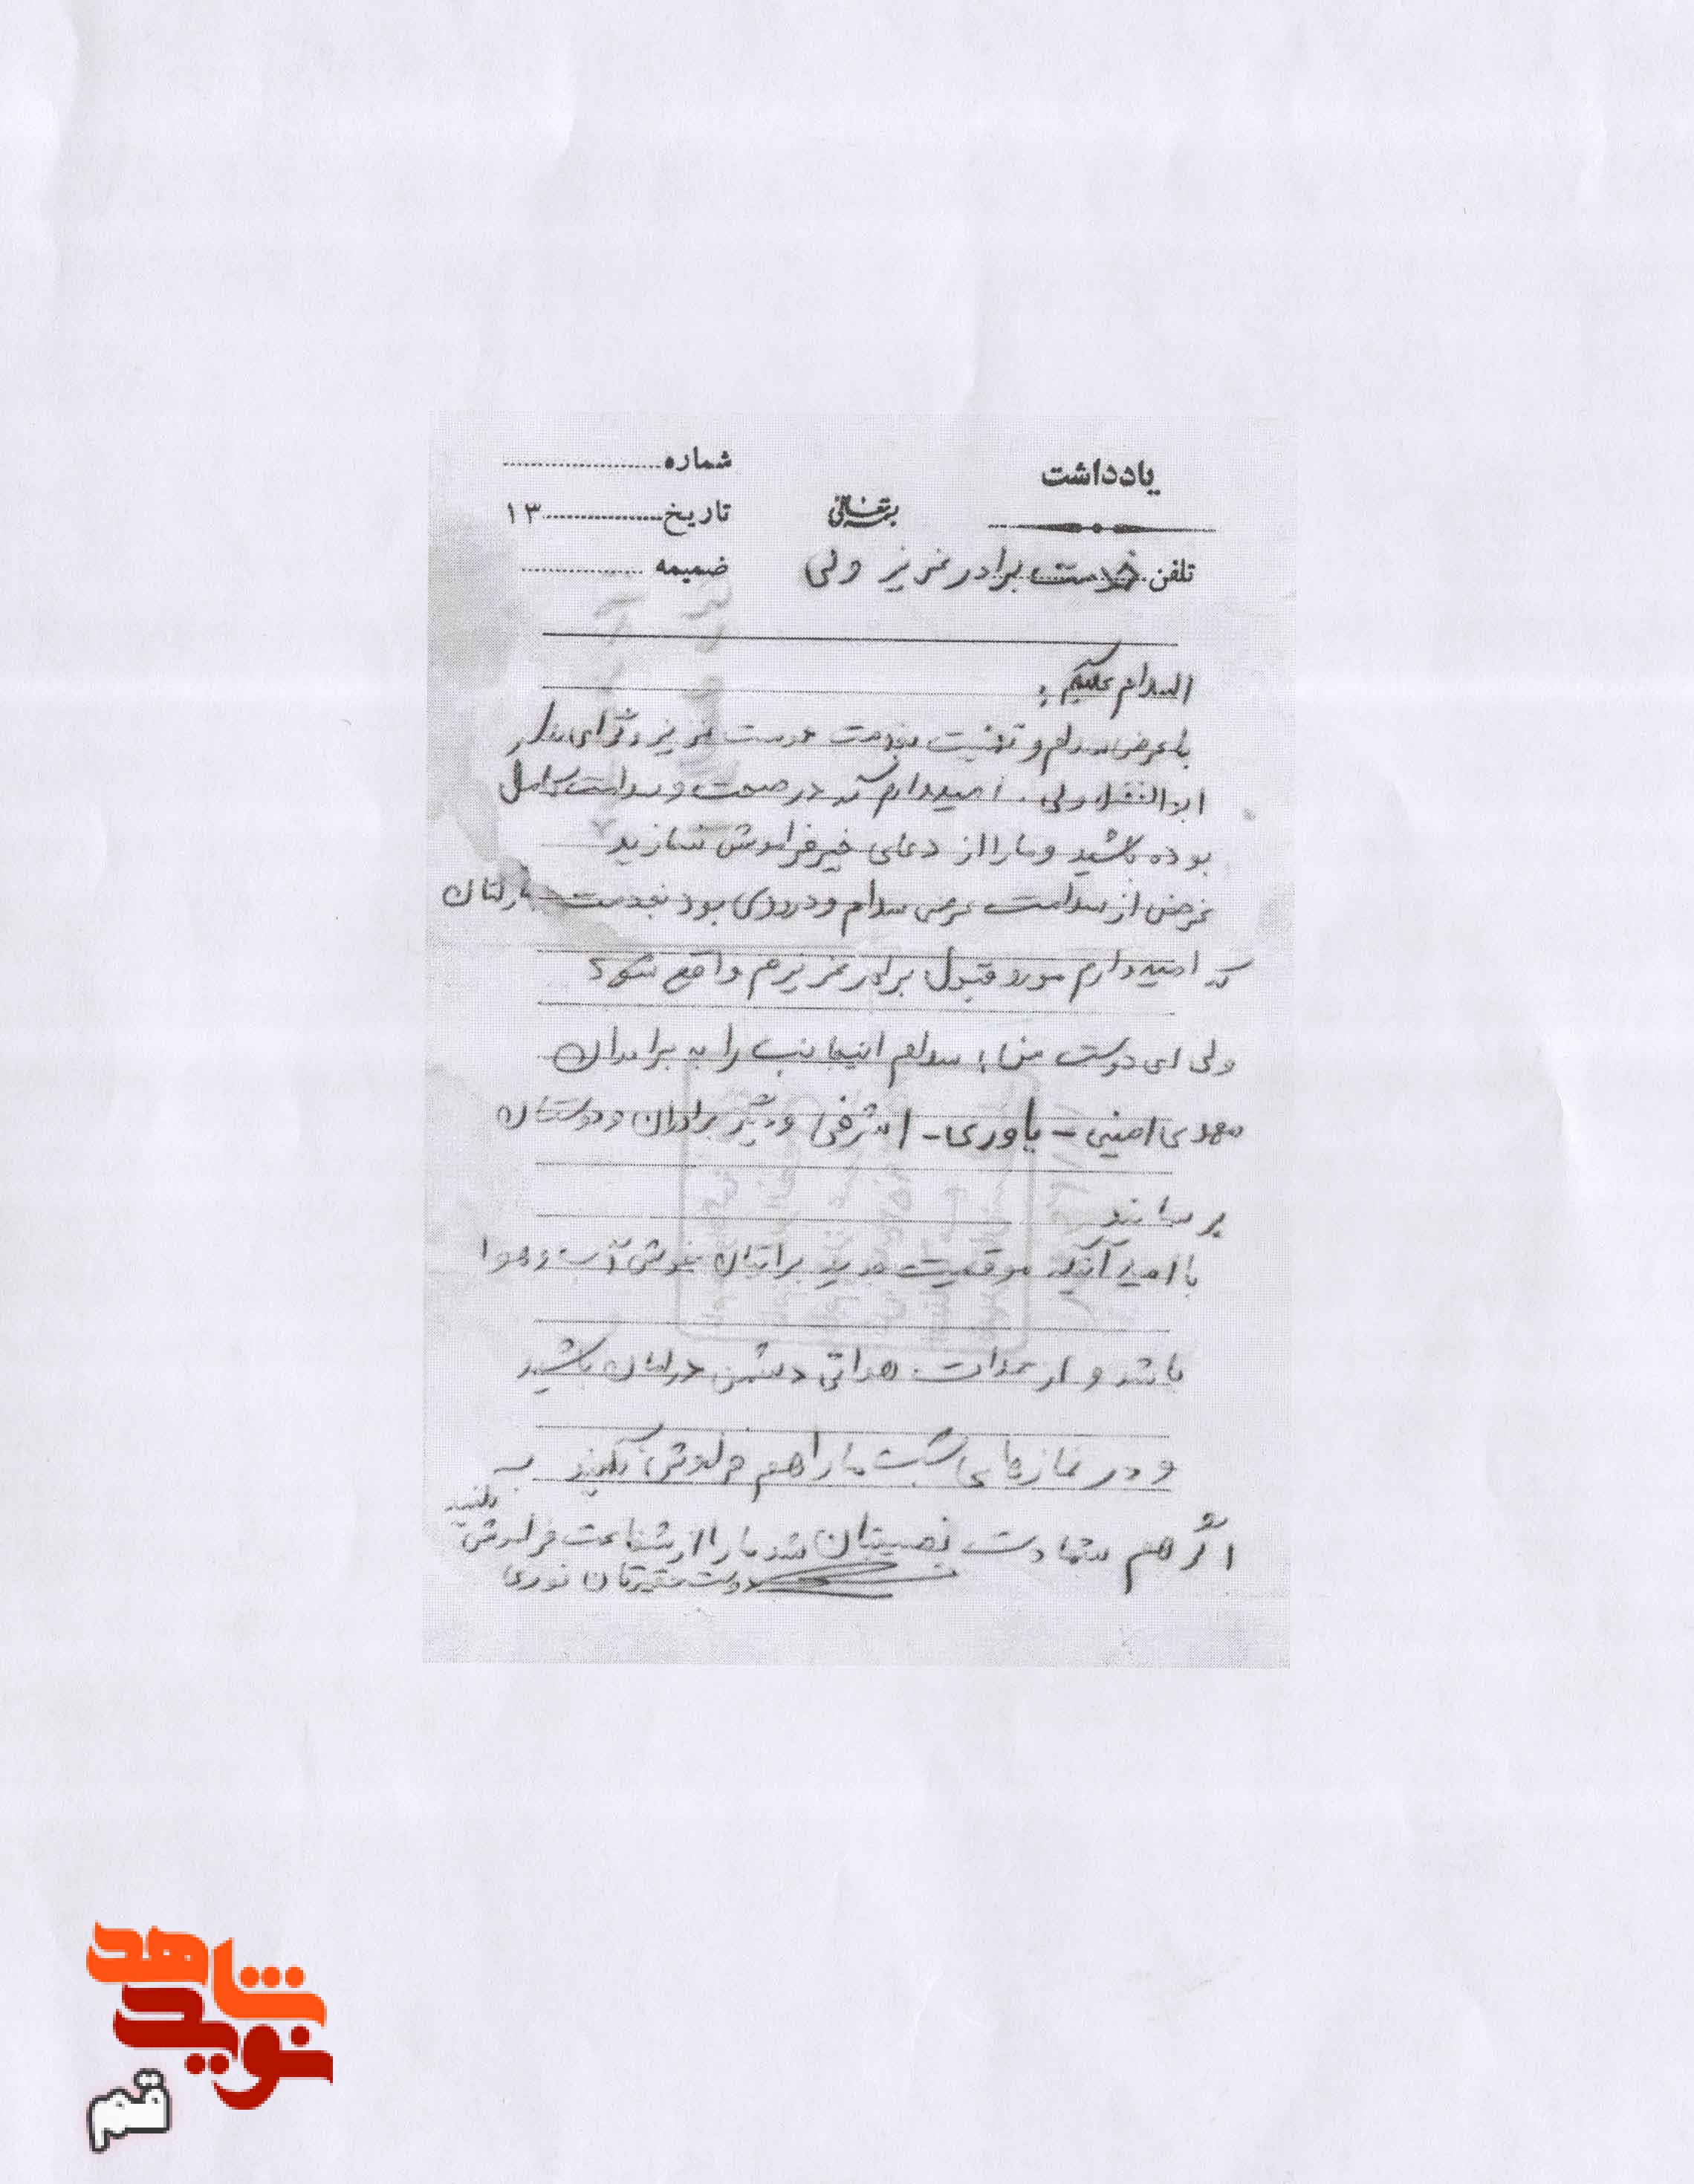 یادداشت
شماره
بسمه تعالی
تاریخ ۱۳
تلفن خدمت برادر عزیز ولی
ضمیمه
السلام علیکم :
با عرض سلام و تهنیت بخدمت دوست عزیز و
ابوالفضل ولی . امیدوارم که در صحت و سلامت کامل
بوده باشید و ما را از دعای خیر فراموش نسازید
غرض از سلامت عرض سلام و درودی بود بخدمت
که امیدوارم مورد قبول برادر عزیزم واقع شود
ولی ای دوست من ؛ سلام اینجانب را به برادران
مهدی امینی - یاوری - اشرفی و دیگر برادران و دوستان
برسانید
با امید آنکه موقعیت جدید برایتان خوش آب و هوا
باشد و از حملات هوائی دشمن در امان باشید
و در نمازهای شبت ما را هم فراموش نکنید
اگر هم شهادت نصیبتان شد ما را از شفاعت فراموش نکنید
دوست حقیرتان نوری
نوید شاهد
قم